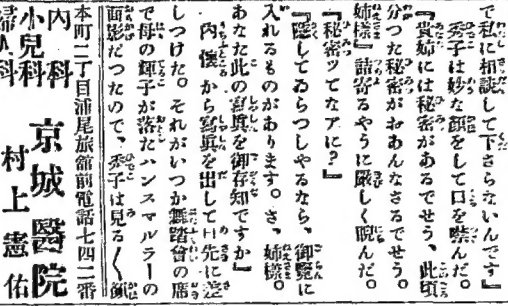 で私に相談して下さらないんです』
秀子は妙な顔をして口を噤んだ。
『貴姉には秘密があるでせう、此頃
分つた秘密がおあんなさるでせう。
姉様』詰寄るやうに厳しく睨んだ。
『秘密ッてなアに？』
『隠してゐらつしやるなら、御覧に
入れるものがあります。さ、姉様。
あなた此の寫眞を御存知ですか』
内懐から寫眞を出して目先に差
しつけた。それがいつか舞踏會の席
で母の輝子が落たハンスマルラーの
面影だつたので、秀子は見る〱顔
本町二丁目浦尾旅舘前電話七四二番
内科
小兒科
婦人科
京城醫院
村上憲佑